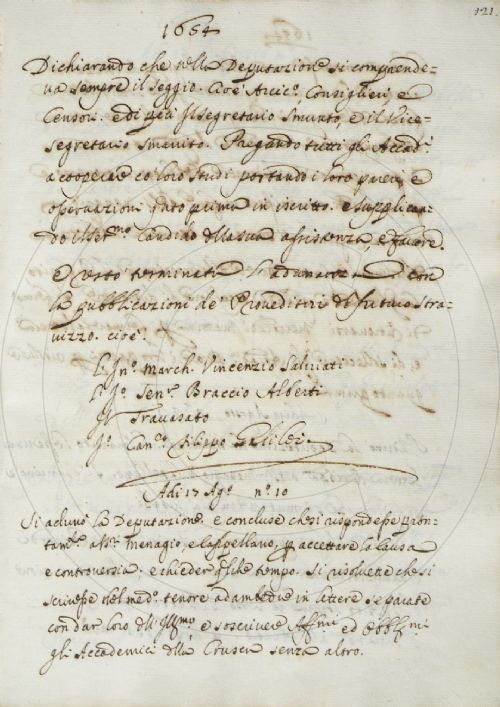 121.
1654
Dichiarando che nella Deputazione si comprende-
va sempre il seggio. Cioè Arcic.º, Consiglieri, e
Censori. e di più Il segretario Smunto, e il Vice-
segretario smarrito. Pregando tutti gli Accad.ⁱ
a cooperare co loro studi portando i loro pareri, e
osservazioni quanto prima in iscritto. e supplican-
do il Ser.ᵐᵒ Candido della sua assistenza, e favore.
E resto terminata l'adunanza con
la pubblicazioni de' Proveditori del futuro Stra-
vizzo. cioè.
March. Vincenzio Salviati
Sen.ʳ Braccio Alberti
Il Travasato
Can.ᶜᵒ Filippo Galilei
Adi 17 Agº nº. 10
Si adunò la Deputazione. e concluse che si rispondesse pron-
tam.ᵗᵉ a Menagio, e Cappellano, accettare la causa
e controversia, e chieder tempo. Si risolvette che si
scrivesse del med.º tenore ad ambedue in lettere separate
con dar loro dell' Ill.ᵐᵒ e soscrivere Aff.ᵐⁱ ed Obb.ᵐⁱ
gli Accademici della Crusca senza altro.